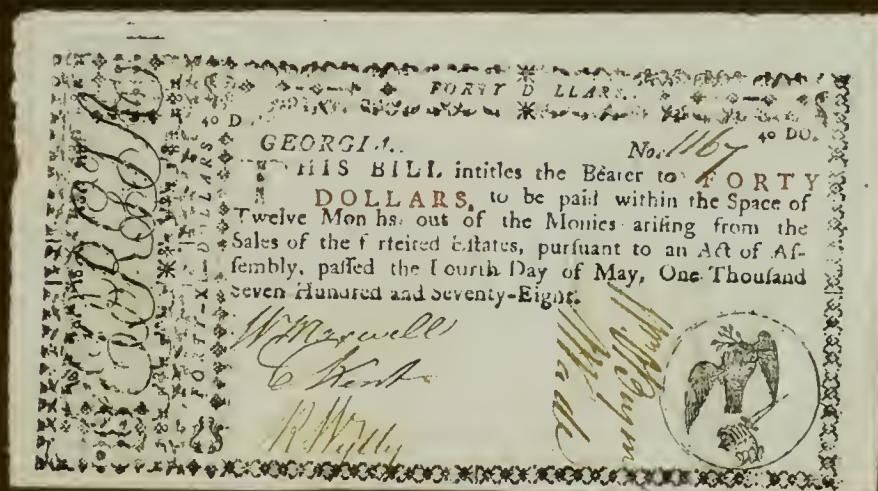 FORTY D LLARS.
40 D
40 DO.
GEORGIA.
No. 1167
HIS BILL intitles the Bearer to FORTY
DOLLARS, to be paid within the Space of
Twelve Mon hs. out of the Monies ariſing from the
Sales of the f rfeited Eſtates, purſuant to an Act of Aſ-
ſembly, paſſed the Fourth Day of May, One Thouſand
Seven Hundred and Seventy-Eight.
W Maxwell
C Kent
R Wylly
Wade
GEORGIA
FORTY-XL-DOLLARS